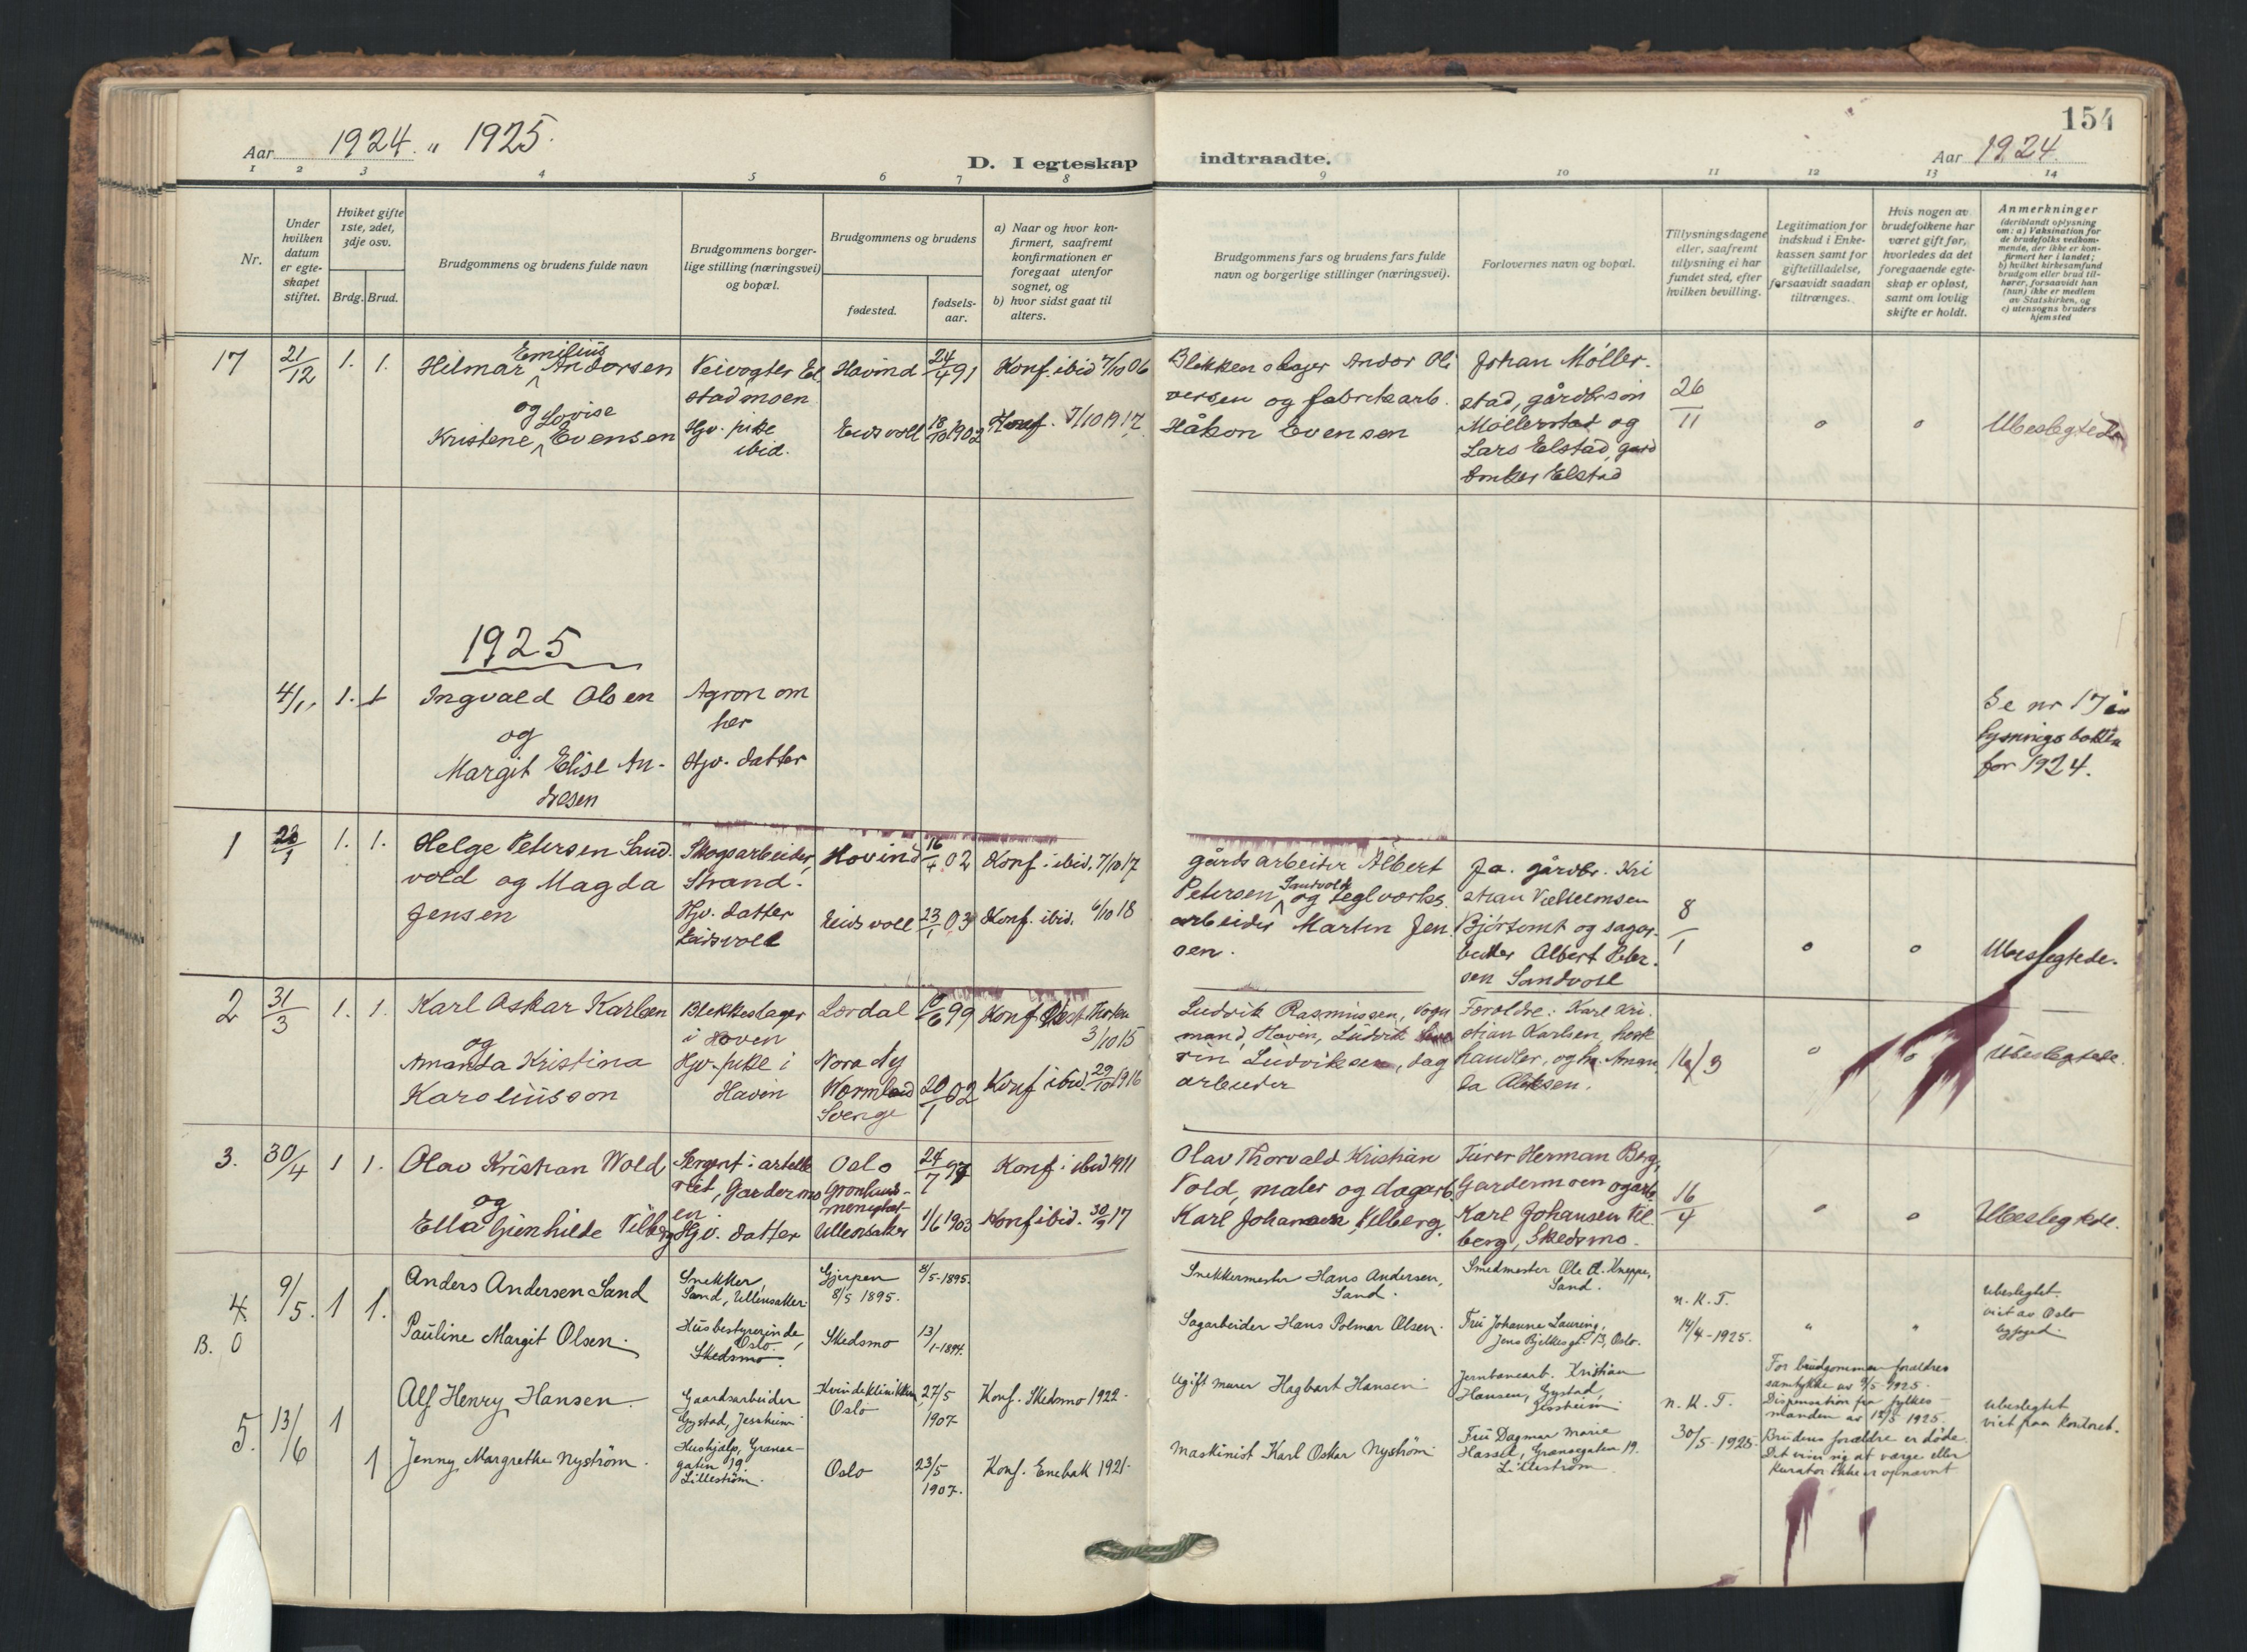 154
Aar 1924 " 1925.
D. I egteskap indtraadte.
Aar 1924.
1 2 3 4 5 6 7 8 9 10 11 12 13 14
Nr.
Under
hvilken
datum
er egte-
skapet
stiftet.
Hviket gifte
1ste, 2det,
3dje osv.
Brdg. Brud.
Brudgommens og brudens fulde navn
Brudgommens borger-
lige stilling (næringsvei)
og bopæl.
Brudgommens og brudens
fødested.
fødsels-
aar.
a) Naar og hvor kon-
firmert, saafremt
konfirmationen er
foregaat utenfor
sognet, og
b) hvor sidst gaat til
alters.
Brudgommens fars og brudens fars fulde
navn og borgerlige stillinger (næringsvei).
Forlovernes navn og bopæl.
Tillysningsdagene
eller, saafremt
tillysning ei har
fundet sted, efter
hvilken bevilling.
Legitimation for
indskud i Enke-
kassen samt for
giftetilladelse,
forsaavidt saadan
tiltrænges.
Hvis nogen av
brudefolkene har
været gift før,
hvorledes da det
foregaaende egte-
skap er opløst,
samt om lovlig
skifte er holdt.
Anmerkninger
(deriblandt oplysning
om: a) Vaksination for
de brudefolks vedkom-
mende, der ikke er kon-
firmert her i landet;
b) hvilket kirkesamfund
brudgom eller brud til-
hører, forsaavidt han
(hun) ikke er medlem
av Statskirken, og
c) utensogns bruders
hjemsted
17 21/12 1. 1.
Hilmar Emilius Andorsen
og
Kristene Lovise Evensen
Veivogter El
stadmoen
Hjv. pike
ibid.
Hovind 24/4 91
Eidsvoll 18/10 1902
Konf. ibid 7/10 06
Konf. 7/10 1917
Blikkenslager Andor Oli
versen og fabrikarb.
Håkon Evensen
Johan Møller-
stad, gårdbr. søn
Møllerstad og
Lars Elstad, gård
bruker Elstad
26/11
o o Ubeslegtede
1925
4/1. 1. 1
Ingvald Olsen
og
Margit Elise An-
dresen
Agronom
her
Hjv. datter
Se nr 17 i
lysningsboken
for 1924.
1 1. 1.
Helge Petersen Sand-
vold og Magda
Jensen
Skogsarbeider,
Strand.
Hjv. datter
Eidsvoll
Hovind 16/4 02
Eidsvoll 23/1 03
Konf. ibid. 7/10 17
Konf. ibid. 6/10 18
gårdsarbeider Albert
Petersen Sandvold og teglverks
arbeider Martin Jen-
sen.
Fa. gårdbr. Kri
stian Vilhelmsen
Bjørtomt og sagar-
beider Albert Peter-
sen Sandvold
8/1
o o Ubeslegtede.
2 31/3 1. 1.
Karl Oskar Karlsen
og
Amanda Kristina
Karoliusson
Blikkeslager
i Hoven
Hjv. pike i
Hovin
Lørdal
Nora Ny
Wormland
Sverige
20/1 02
3/10 15
Konf ibid. 29/10 1916
Ludvik Rasmussen, vogn
mand, Hovin, Ludvik
Ludviksen, dag
arbeider
Foreldre: Karl Kri-
stian Karlsen, hest
handler, og fr. Aman
da
16/3
o o Ubeslegtede.
3. 30/4 1 1.
Olav Kristian Wold
og
Ella Gunhilde Vilberg
Sergent i artille
riet, Gardermo
en.
Hjv. datter
Oslo
Grønlands-
menighet
Ullensaker
24/7 97
1/6 1903
Konf. ibid 1911
Konf ibid. 30/9 17
Olav Thorvald Kristian
Vold, maler og dagarb.
Karl Johansen Vilberg.
Furer Herman Berg,
Gardermoen og arb.
Karl Johansen Vil-
berg, Skedsmo.
16/4
o o Ubeslegtede.
4. 9/5. 1 1.
B. 0
Anders Andersen Sand
Pauline Margit Olsen.
Snekker,
Sand, Ullensaker.
Husbestyrerinde,
Oslo.
Skedsmo.
Gjerpen
8/5 1895.
Skedsmo
8/5-1895.
13/1-1894.
Snekkermester Hans Andersen,
Sand.
Sagarbeider Hans Polmar Olsen.
Smedmester Ole A. Kneppe,
Sand.
Fru Johanne Lauring,
Jens Bjelkesgt. 13, Oslo.
n. K. T.
14/4-1925.
" "
Ubeslegtet.
viet av Oslo
byfoged.
5. 13/6 1
1
Alf Henry Hansen.
Jenny Margrethe Nystrøm.
Gaardsarbeider
Gystad, Jessheim
Hushjælp, Grænse-
gaten 19.
Lillestrøm.
Kvindeklinikken,
Oslo
Oslo
27/5
1907
23/5
1907.
Konf. Skedsmo 1922.
Konf. Enebak 1921.
Ugift murer Hagbart Hansen
Maskinist Karl Oskar Nystrøm.
Jernbanearb. Kristian
Hansen, Gystad,
Jessheim
Fru Dagmar Marie
Hassel, Grænsegaten 19.
Lillestrøm
n. K. T.
30/5-1925.
For brudgommen forældres
samtykke av 9/5 1925.
Dispensation fra fylkes-
manden av 12/5 1925.
Brudens forældre er døde.
Det viser sig at værge eller
kurator ikke er opnævnt
Ubeslegtet
viet paa kontoret.